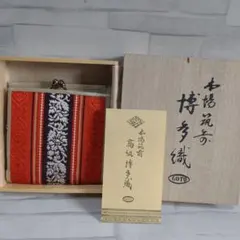 本場筑前
博多織
本場筑前
高級博多織